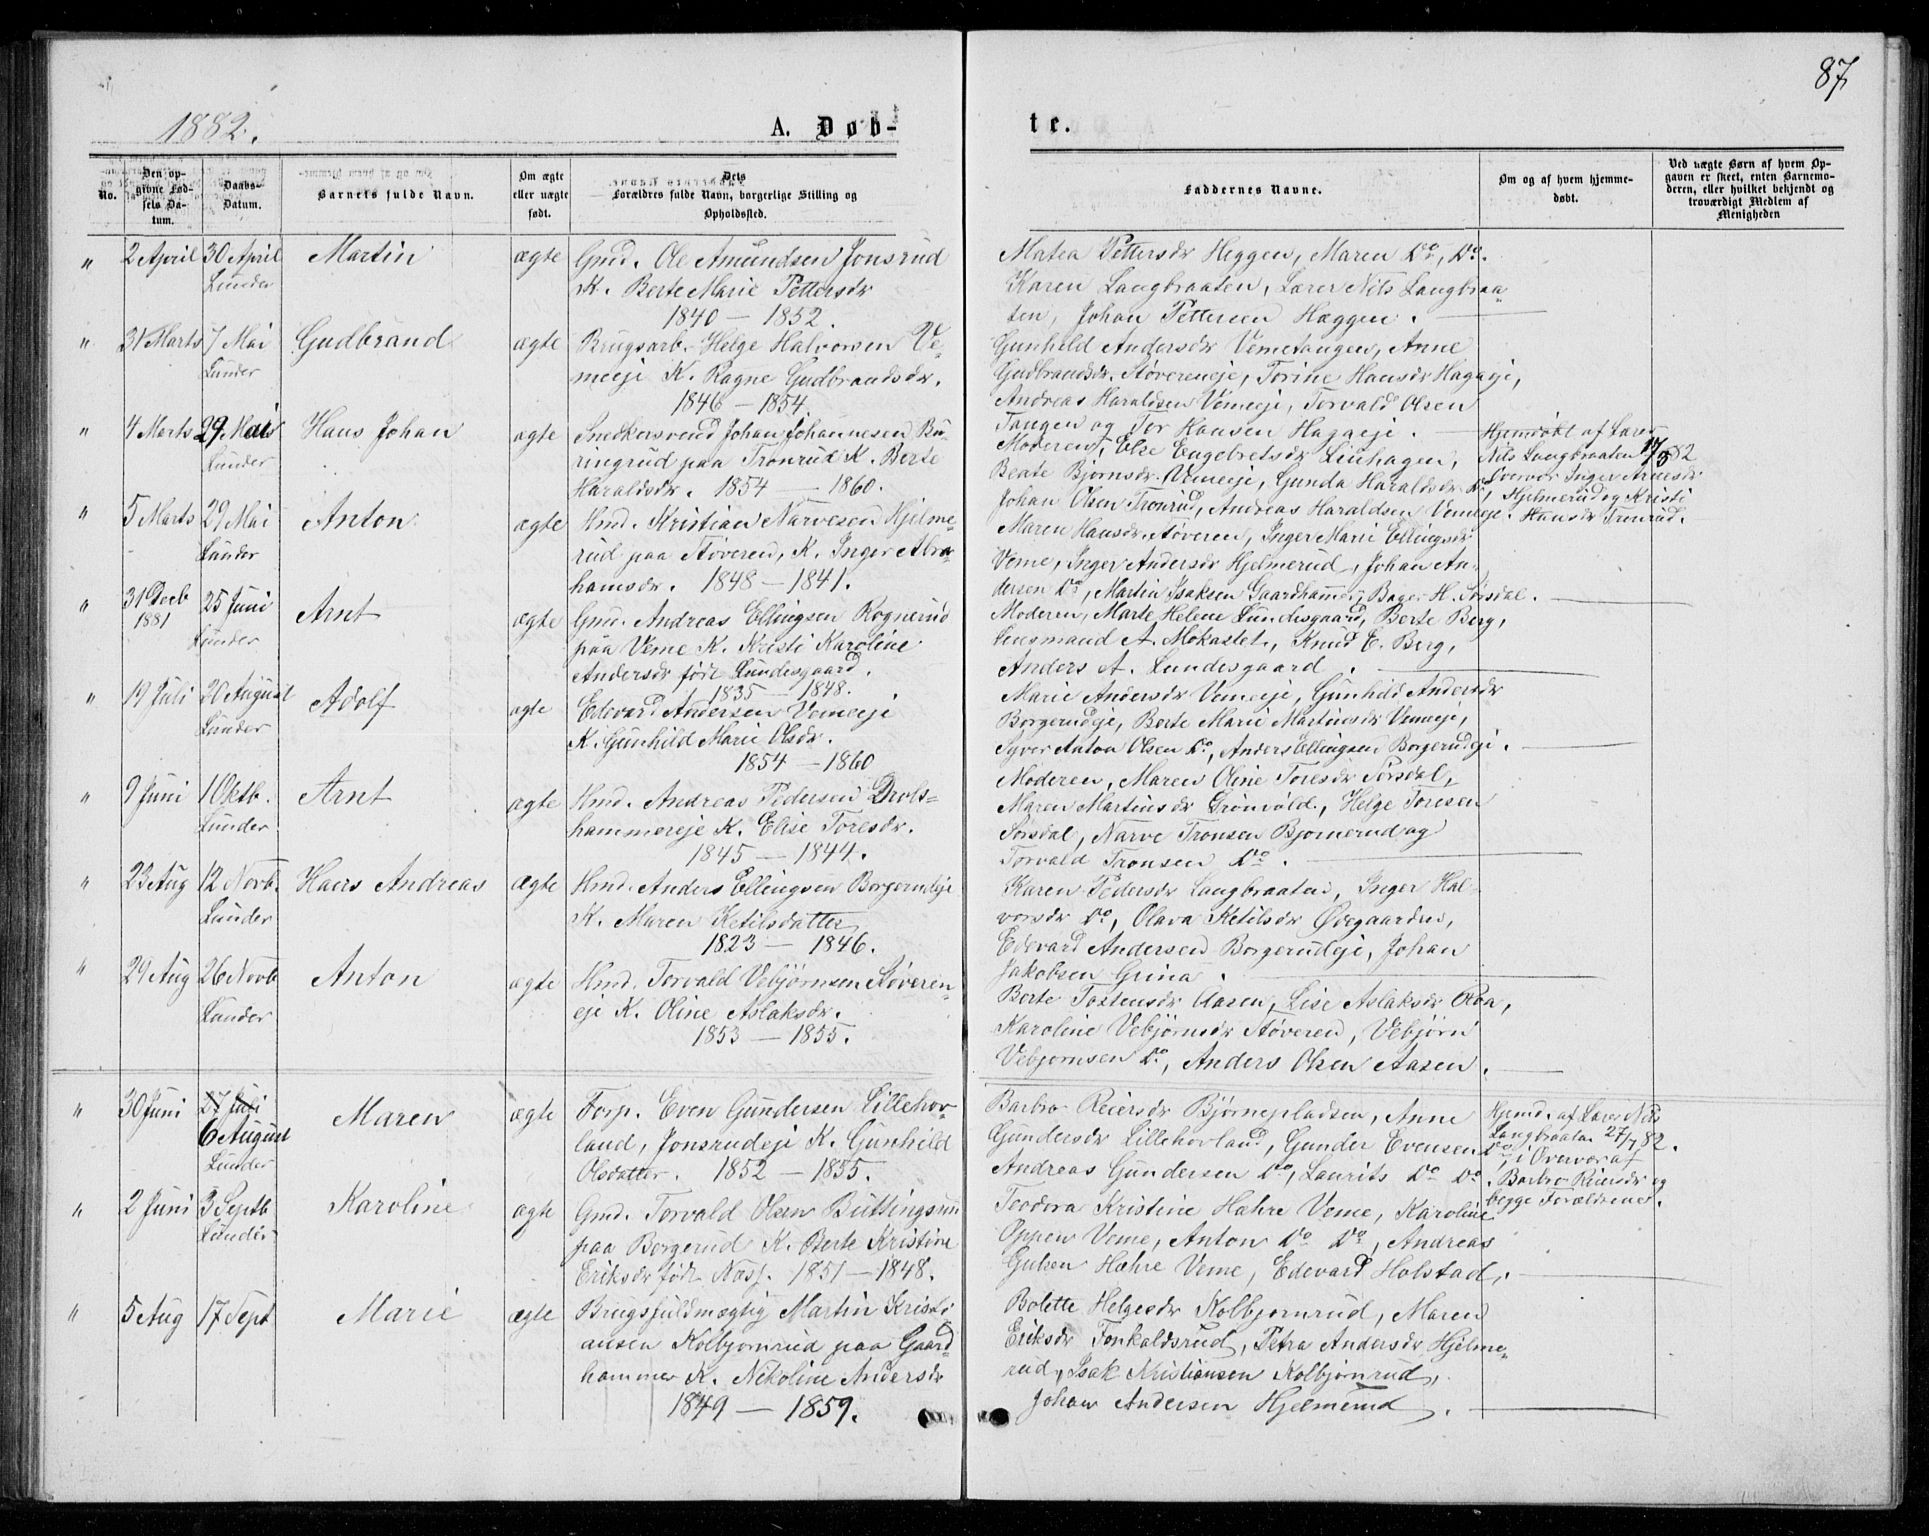 87
1882.
A. Døb-
te.
No.
Den op-
givne Fød-
sels Da-
tum.
Daabs-
Datum.
Barnets fulde Navn.
Om ægte
eller uægte
født.
Dets
Forældres fulde Navn, borgerlige Stilling og
Opholdssted.
Faddernes Navne.
Om og af hvem hjemme-
døbt.
Ved uægte Børn af hvem Op-
gaven er skeet, enten Barnemo-
deren, eller hvilket bekjendt og
troværdigt Medlem af
Menigheden
" 2 April 30 April Martin ægte Gmd. Ole Amundsen Jonsrud
Lunder K. Berte Marie Pettersdr
1840 — 1852.
Matea Pettersdr Heggen, Maren Do, Do.
Karen Langbraaten, Lærer Nils Langbraa-
ten, Johan Pettersen Hæggen.
" 31 Marts 7 Mai Gudbrand ægte Brugsarb. Helge Halvorsen Ve-
Lunder meeje K. Ragne Gudbrandsdr.
1846 — 1854
Gunhild Andersdr Vemetangen, Anne
Gudbrandsdr. Støvereneje, Torine Hansdr Hagaeje,
Andreas Haraldsen Vemeeje, Torvald Olsen
Tangen og Tor Hansen Hagaeje.
" 4 Marts 29 Mai Hans Johan ægte Snedkersvend Johan Johannesen Bu-
Lunder ringrud paa Tronrud K. Berte
Haraldsdr. 1854 — 1860.
Moderen, Else Engebretsdr Linhagen,
Beate Bjørnsdr. Vemeeje, Gunda Haraldsdr Do,
Johan Olsen Tronrud, Andreas Haraldsen Vemeeje.
Hjemdøbt af Lærer
Nils Langbraaten 17/3 82
Overvær Inger Arnesdr
Hjelmerud og Kristi
Hansdr Tronrud.
" 5 Marts 29 Mai Anton ægte Hmd. Kristian Narvesen Hjelme-
Lunder rud paa Støveren, K. Inger Abra-
hamsdr. 1848 — 1841.
Maren Hansdr. Støveren, Inger Marie Ellingsdr
Veme, Inger Andersdr Hjelmerud, Johan An-
dersen Do, Martin Isaksen Gaardhammer, Bager H. Sørsdal.
" 31 Decb 25 Juni Arnt ægte Gmd. Andreas Ellingsen Rognerud
1881 Lunder paa Veme K. Kristi Karoline
Andersdr født Lundesgaard.
1835 — 1848.
Moderen, Marte Helene Lundesgaard, Berte Berg,
Lensmand A. Mokastet, Knud E. Berg,
Anders A. Lundesgaard.
" 19 Juli 20 August Adolf ægte Edevard Andersen Vemeeje
Lunder K. Gunhild Marie Olsdr.
1854 — 1860
Marie Andersdr Vemeeje, Gunhild Andersdr
Borgerudeje, Berte Marie Martinsdr Vemeeje,
Syver Anton Olsen Do, Anders Ellingsen Borgerudeje.
" 9 Juni 1 Oktb. Arnt ægte Hmd. Andreas Pedersen Drols-
Lunder hammereje K. Elise Toresdr.
1845 — 1844.
Moderen, Maren Oline Toresdr Sørsdal,
Maren Martinsdr Grønvold, Helge Toresen
Sørsdal, Narve Tronsen Bjornerud og
Torvald Tronsen Do.
" 23 Aug 12 Novb. Hans Andreas ægte Hmd. Anders Ellingsen Borgerudeje
Lunder K. Maren Ketilsdatter
1823 — 1846.
Karen Pedersdr Langbraaten, Inger Hal-
vorsdr Do, Olava Ketilsdr Øvegaarden,
Edevard Andersen Borgerudeje, Johan
Jakobsen Grina.
" 29 Aug 26 Novb Anton ægte Hmd. Torvald Vebjørnsen Støveren-
Lunder eje K. Oline Aslaksdr.
1853 — 1855.
Berte Tostensdr Aasen, Lise Aslaksdr Roa,
Karoline Vebjørnsdr Støveren, Vebjørn
Vebjornsen Do, Anders Olsen Aasen.
" 30 Juni 27 Juli Maren ægte Forp. Even Gundersen Lillehov-
6 August land, Jonsrudeje K. Gunhild
Lunder Olsdatter. 1852 — 1855.
Barbro Reiersdr Bjørnepladsen, Anne
Gundersdr Lillehovland, Gunder Evensen Do,
Andreas Gundersen Do, Laurits Do Do.
Hjemd. af Lærer Nils
Langbraaten 27/7 82.
i Overvær af
Barbro Reiersdr og
begge Forældrene.
" 2 Juni 3 Septb Karoline ægte Gmd. Torvald Olsen Buttingsrud
Lunder paa Borgerud K. Berte Kristine
Eriksdr født Næss. 1851 — 1848.
Teodora Kristine Hæhre Veme, Karoline
Oppen Veme, Anton Do Do, Andreas
Gulsen Hæhre Veme, Edevard Holstad.
" 5 Aug 17 Sept Marie ægte Brugsfuldmægtig Martin Kristi-
ansen Kolbjørnrud paa Gaard-
hammer K. Nikoline Andersdr
1849 — 1859.
Bolette Helgesdr Kolbjørnrud, Maren
Eriksdr Tonkaldsrud, Petra Andersdr Hjelme-
rud, Isak Kristiansen Kolbjørnrud,
Johan Andersen Hjelmerud.